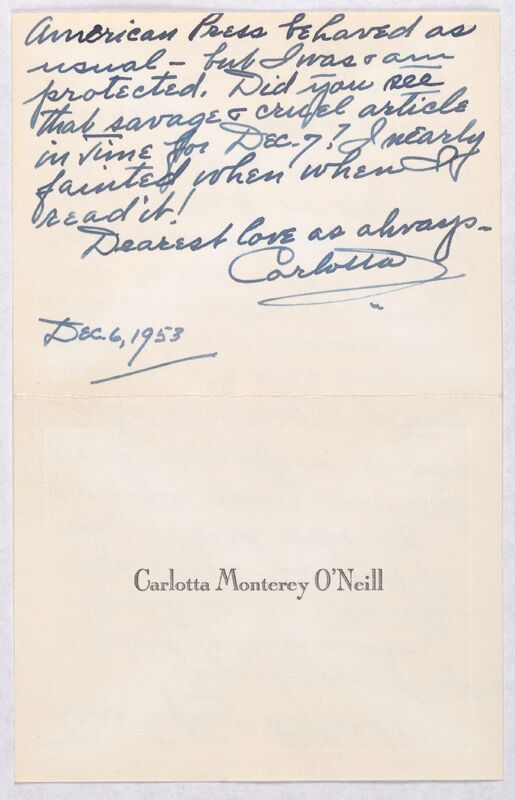 American Press behaved as
usual – but I was & am
protected. Did you see
that savage & cruel article
in Time for Dec. 7? I nearly
fainted when when I
read it!
Dearest love as always –
Carlotta
Dec. 6, 1953
Carlotta Monterey O'Neill